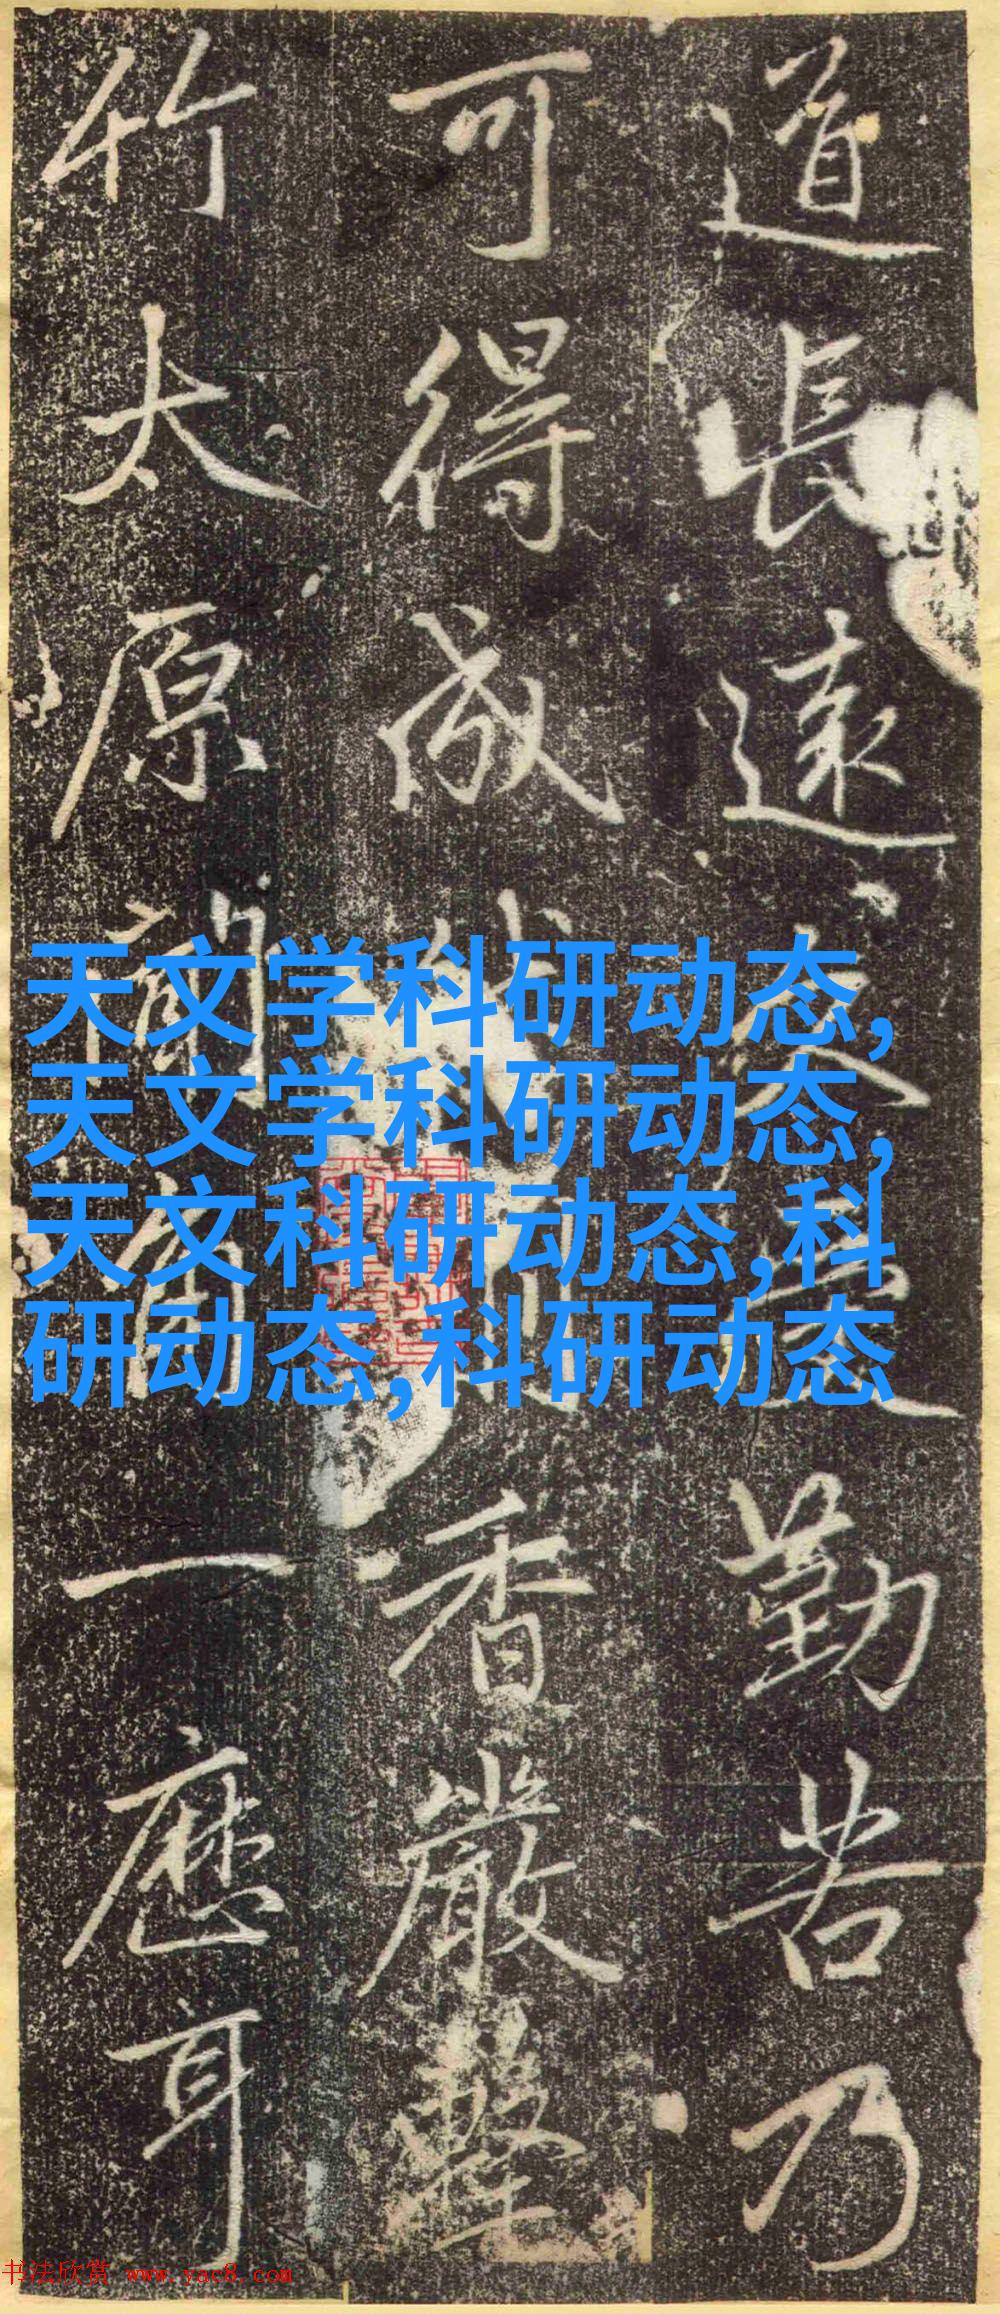 道長遠勤苦乃
可得成香嚴擊
竹太原一應耳
天文学科研动态,
天文学科研动态,
天文科研动态,科
研动态,科研动态
书法欣赏 www.yac8.com